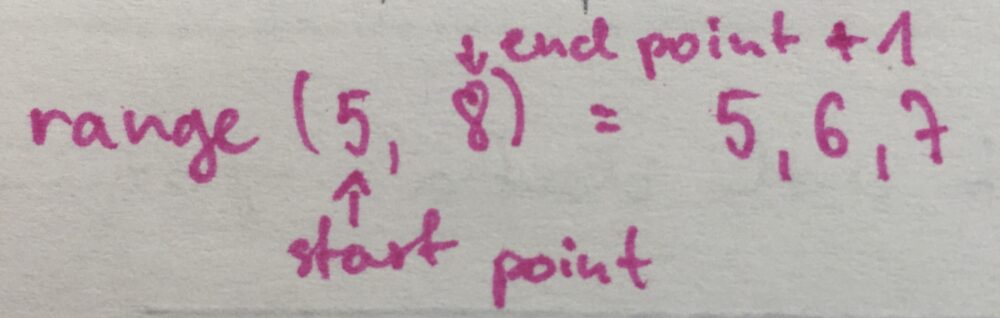 ↓ end point + 1
range (5, 8) = 5, 6, 7
↑
start point